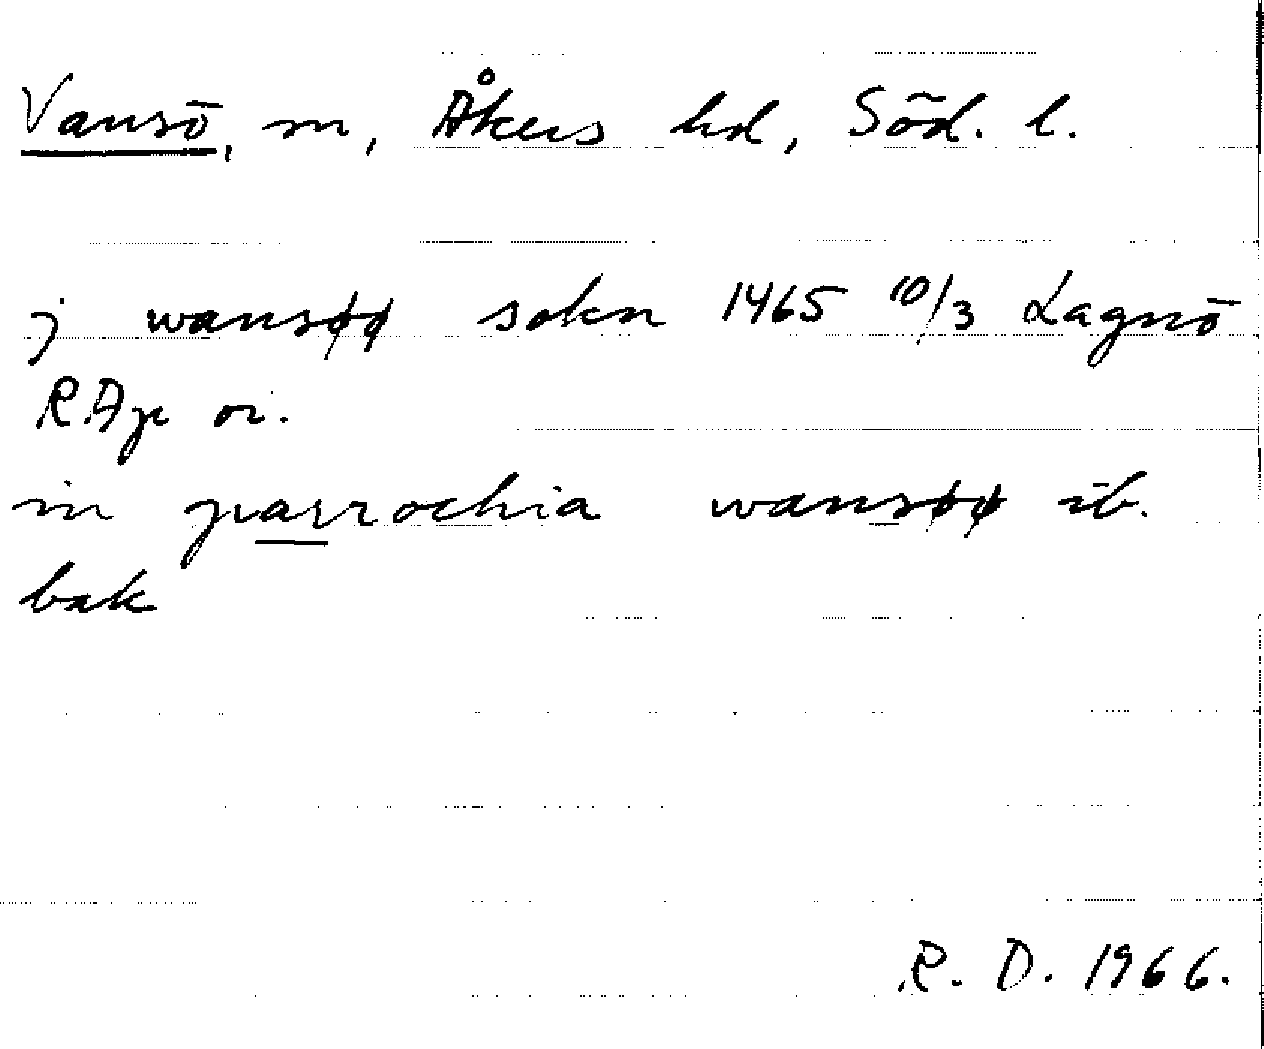 Vansö, sn, Åkers hd, Söd. l.
j wansøø sokn 1465 10/3 Lagnö
RAp or.
in parrochia wansøø ib.
bak
R. D. 1966.